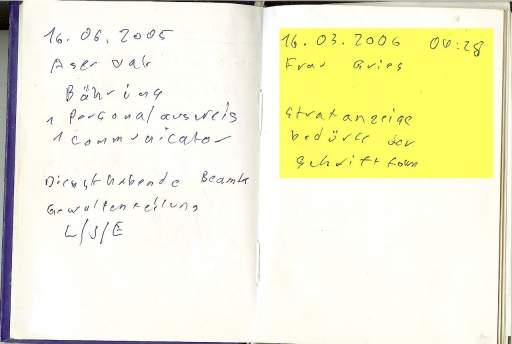 16.06.2005
Aservat
Bähring
1 Personalausweis
1 Communicator
Diensthabende Beamte
Gewaltenteilung
L/J/E
16.03.2006 04:28
Frau Gries
Strafanzeige
bedürfe der
Schriftform